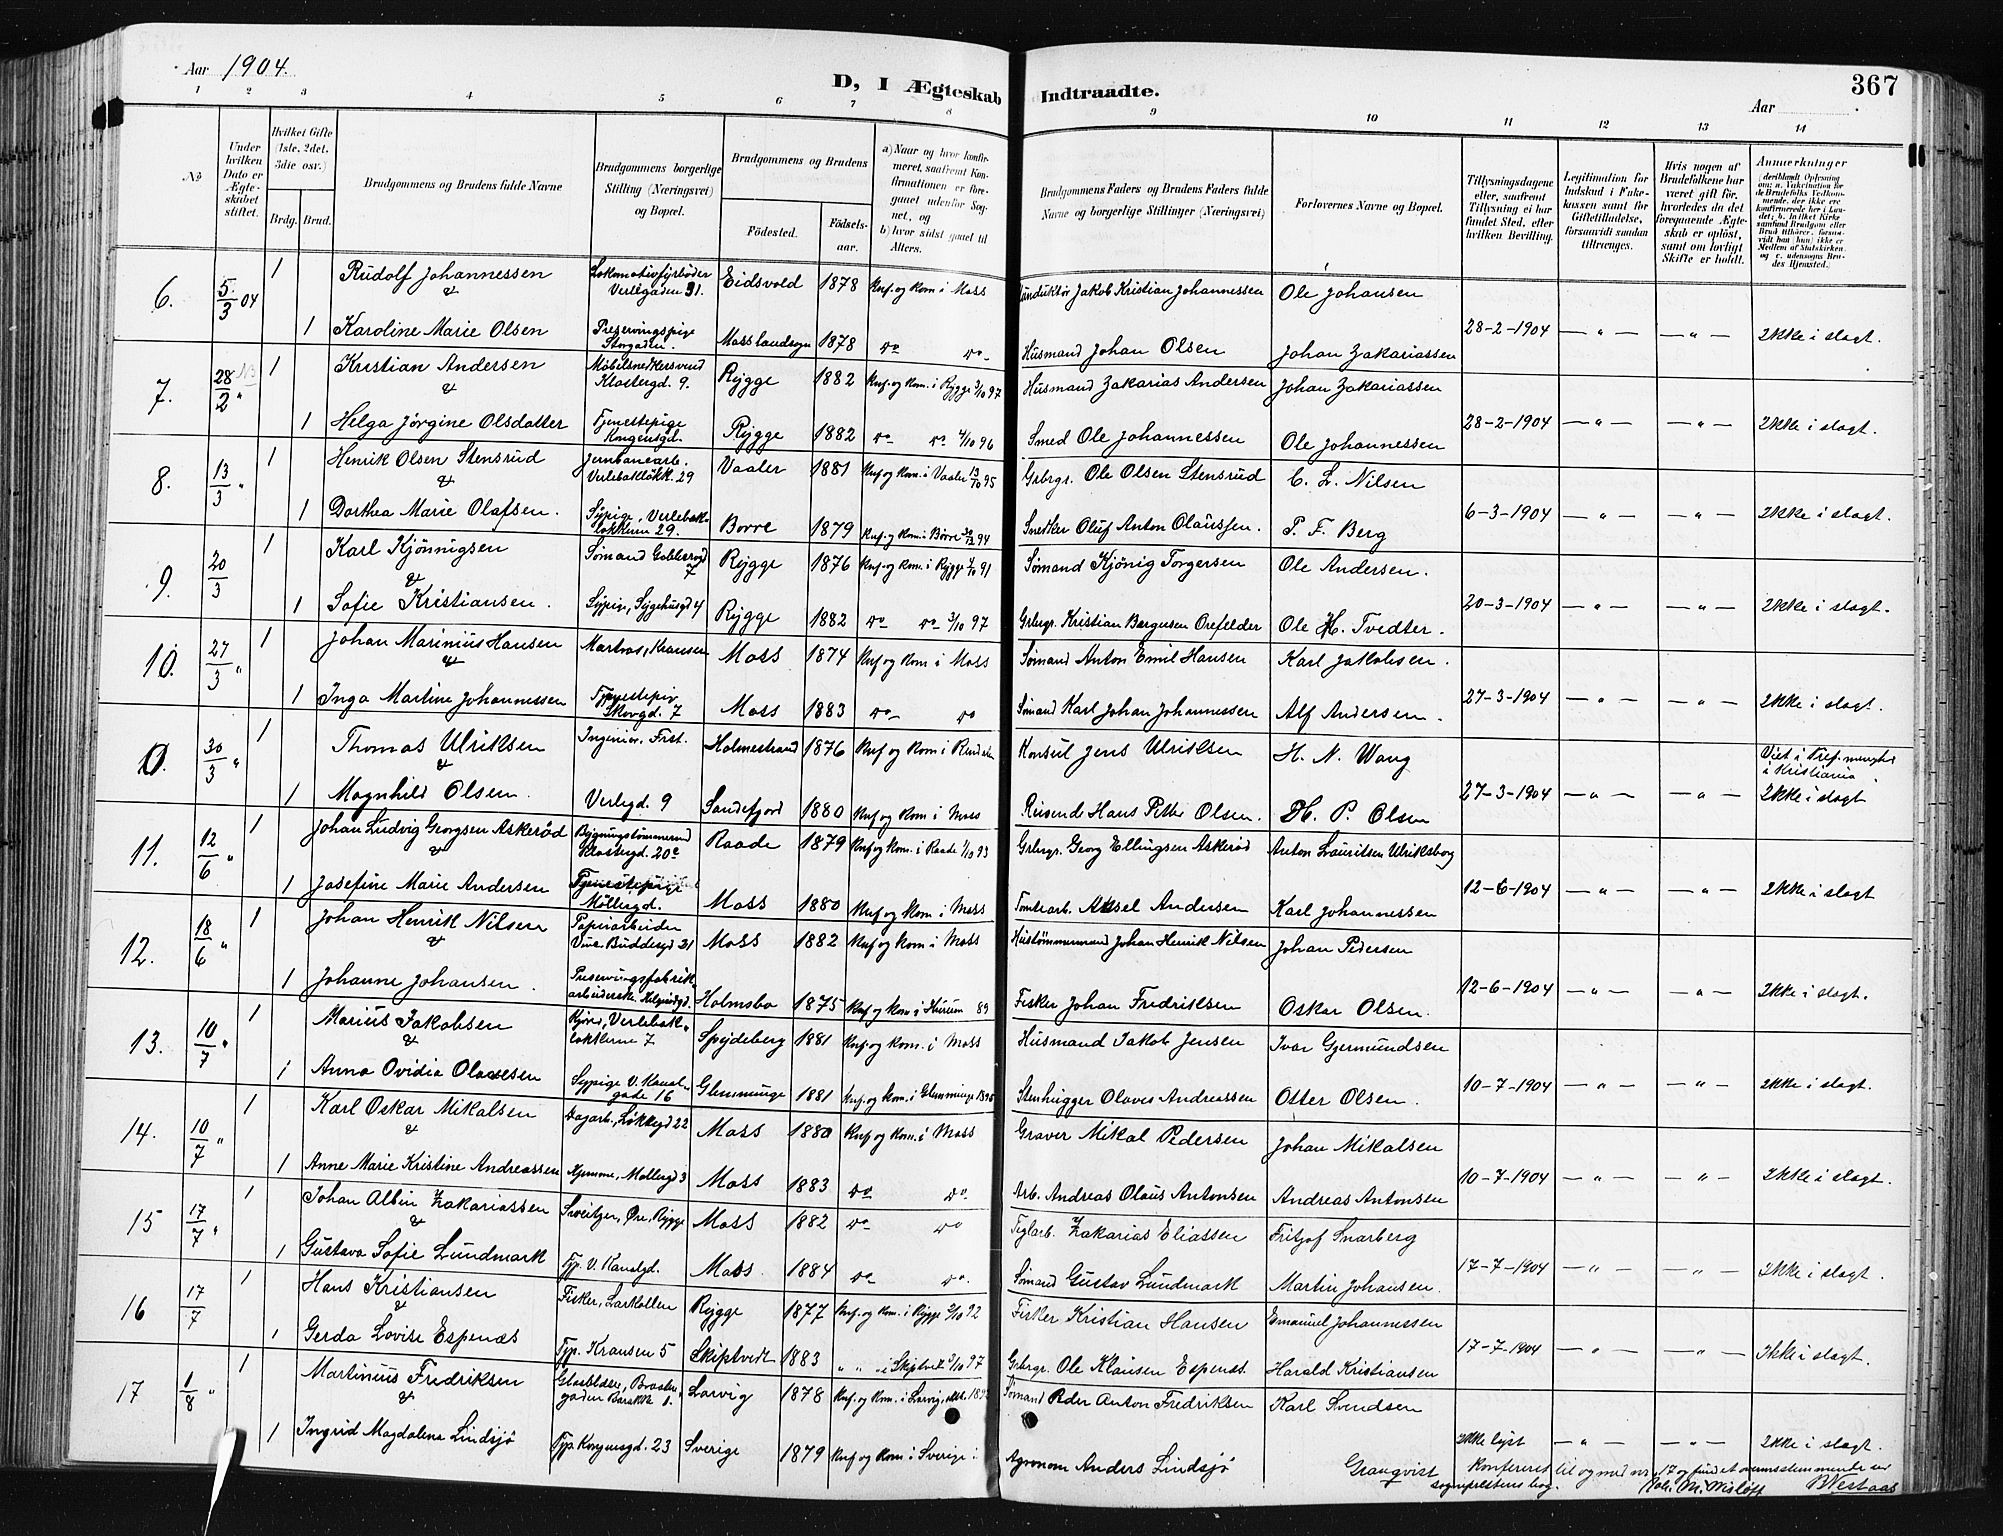 Aar 1904.
D, I Ægteskab Indtraadte.
367
Aar
1 2 3 4 5 6 7 8 9 10 11 12 13 14
№
Under hvilken Dato er Ægteskabet stiftet.
Hvilket Gifte (1ste, 2det, 3die osv.)
Brdg. Brud.
Brudgommens og Brudens fulde Navne
Brudgommens borgerlige Stilling (Næringsvei) og Bopæl.
Brudgommens og Brudens
Fødested. Fødsels-aar.
a) Naar og hvor konfirmeret, saafremt Konfirmationen er foregaaet udenfor Sognet, og
b) hvor sidst gaaet til Alters.
Brudgommens Faders og Brudens Faders fulde Navne og borgerlige Stillinger (Næringsvei)
Forlovernes Navne og Bopæl.
Tillysningsdagene eller, saafremt Tillysning ei har fundet Sted, efter hvilken Bevilling.
Legitimation for Indskud i Enkekassen samt for Giftetilladelse, forsaavidt saadan tiltrænges.
Hvis nogen af Brudefolkene har været gift før, hvorledes da det foregaaende Ægteskab er opløst, samt om lovligt Skifte er holdt.
Anmærkninger
6. 5/3 04 1 Rudolf Johannessen & Lokomotivfyrbøder Verlegaden 31. Eidsvold 1878 Knf. og kom. i Moss Konduktør Jakob Kristian Johannessen Ole Johansen
1 Karoline Marie Olsen Preservingspige Storgaden. Moss landsogn 1878 do do Husmand Johan Olsen Johan Zakariassen 28-2-1904 — " — — " — Ikke i slægt.
7. 28/2 " 1 Kristian Andersen & Møbelsnedkersvend Klostergd. 9. Rygge 1882 Knf. og kom. i Rygge 3/10 97 Husmand Zakarias Andersen Johan Zakariassen
1 Helga Jørgine Olsdatter Tjenestepige Kongensgd. Rygge 1882 do do 4/10 96 Smed Ole Johannessen Ole Johannessen 28-2-1904 — " — — " — Ikke i slægt.
8. 13/3 " 1 Henrik Olsen Stensrud & Jernbanearb. Verlebakløkk. 29 Vaaler 1881 Knf og kom. i Vaaler 13/10 95 Grbrgr. Ole Olsen Stensrud C. L. Nilsen
1 Dorthea Marie Olafsen. Sypige, Verlebakløkkerne 29. Borre 1879 Knf. og kom. i Borre 94 Snedker Oluf Anton Olaussen. P. F. Berg 6-3-1904 — " — — " — Ikke i slægt.
9. 20/3 1 Karl Kjønnigsen & Sømand 7 Rygge 1876 Knf. og kom. i Rygge 4/10 91 Sømand Kjønig Torgersen Ole Andersen.
1 Sofie Kristiansen. Sypige, Sygehusgd 4 Rygge 1882 do do 3/10 97 Grbrgr. Kristian Bergersen Orefelder Ole H. Tvedter. 20-3-1904 — " — — " — Ikke i slægt.
10. 27/3 " 1 Johan Marinius Hansen & Matros, Kransen Moss 1874 Knf og kom i Moss Sømand Anton Emil Hansen Karl Jakobsen.
1 Inga Martine Johannessen Tjenestepig. Skovgd. 7 Moss 1883 do do Sømand Karl Johan Johannessen Alf Andersen. 27-3-1904 — " — — " — Ikke i slægt.
0. 30/3 " 1 Thomas Ulriksen & Ingeniør, Frst. Holmestrand 1876 Knf og kom i Konsul Jens Ulriksen H. N. Wang Viet i Tref. menighed i Kristiania.
1 Magnhild Olsen. Verlegd. 9 Sandefjord 1880 Knf og kom i Moss Reisende Hans Petter Olsen. H. P. Olsen 27-3-1904 — " — — " — Ikke i slægt
11. 12/6 " 1 Johan Ludvig Georgsen Askerød & Bygningstømmermd Klostergd. 20c Raade 1879 Knf og kom. i Raade 1/10 93 Grbrgr. Georg Ellingsen Askerød Anton Lauritsen Ulriksborg
1 Josefine Marie Andersen Tjenestepige Møllergd. Moss 1880 Knf. og kom. i Moss Tomtearb. Aksel Andersen Karl Johannessen 12-6-1904 — " — — " — Ikke i slægt
12. 18/6 " 1 Johan Henrik Nilsen & Papirarbeider Vinc. Buddesgd 21 Moss 1882 Knf og kom. i Moss Hustømmermand Johan Henrik Nilsen Johan Pedersen
1 Johanne Johansen. Preservingsfabrik arbeiderske Helgerødgd. Holmsbo 1875 Knf og kom. i Hurum 89 Fisker Johan Fredriksen Oskar Olsen. 12-6-1904 — " — — " — Ikke i slægt.
13. 10/7 " 1 Marius Jakobsen & Kjører, Verlebakløkkerne 7 Spydeberg 1881 Knf og kom. i Moss Husmand Jakob Jensen Ivar Gjermundsen
1 Anna Ovidia Olavesen Sypige V. Kanalgade 16 Glemminge 1881 Knf. og kom. i Glemminge 1896 Stenhugger Olaves Andreassen Otter Olsen. 10-7-1904 — " — — " — Ikke i slægt.
14. 10/7 " 1 Karl Oskar Mikalsen & Dagarb., Løkkegd 22 Moss 1880 Knf og kom. i Moss Graver Mikal Pedersen Johan Mikalsen
1 Anne Marie Kristine Andreassen Hjemme, Møllergd 3 Moss 1883 do do Arb. Andreas Olaus Antonsen Andreas Antonsen 10-7-1904 — " — — " — Ikke i slægt.
15 17/7 " 1 Johan Albin Zakariassen & Sveitzer, Øre, Rygge Moss 1882 do do Teglarb. Zakarias Eliassen Fritjof Snarberg
1 Gustava Sofie Lundmark Tjp. V. Kanalgd. Moss. 1884 do do. Sømand Gustav Lundmark Martin Johansen. 17-7-1904 — " — — " — Ikke i slægt.
16 17/7 1 Hans Kristiansen & Fisker, Larkollen Rygge 1877 Knf. og kom. i Rygge 2/10 92 Fisker Kristian Hansen Emanuel Johannessen
1 Gerda Lovise Espenæs Tjp. Kransen 5 Skiptvedt 1883 " " " i Skiptvet 3/10 97 Grbrgr. Ole Klausen Espenæs. Harald Kristiansen 17-7-1904 — " — — " — Ikke i slægt.
17 1/8 " 1 Martinius Fredriksen & Barakke 1. Larvig 1878 Knf. og kom. i Larvig, Sømand Peder Anton Fredriksen Karl Svendsen
1 Ingrid Magdalena Lindsjø Tjp. Kongensgd. 23 Sverige 1879 Knf og kom. i Sverige Agronom Anders Lindsjø Granqvist Ikke lyst — " — — " — Ikke i slægt.
Konfereret til og med nr. 17 og fundet overensstemmende med sogneprestens bog.